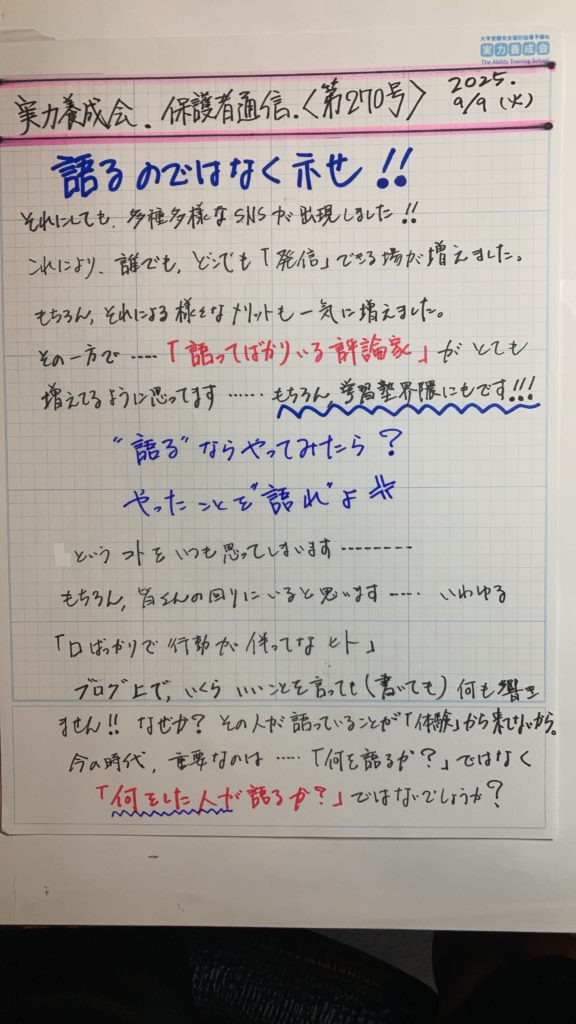 大学受験完全個別指導予備校
実力養成会
The Ability Training School
実力養成会.保護者通信.〈第270号〉
2025.
9/9(火)
語るのではなく示せ!!
それにしても、多種多様なSNSが出現しました!!
これにより、誰でも、どこでも「発信」できる場が増えました。
もちろん、それによる様々なメリットも一気に増えました。
その一方で‥‥「語ってばかりいる評論家」がとても
増えてるように思ってます‥‥‥もちろん、学習塾界隈にもです!!!
"語る"ならやってみたら?
やったことを"語れ"よ
というコトをいつも思ってしまいます---------
もちろん、皆さんの回りにいると思います‥‥‥いわゆる
「口ばっかりで行動が伴ってなヒト」
ブログ上で、いくらいいことを言っても(書いても)何も響き
ません!!なぜか?その人が語っていることが「体験」から来てないから。
今の時代、重要なのは‥‥‥「何を語るか?」ではなく
「何をした人が語るか?」ではないでしょうか?